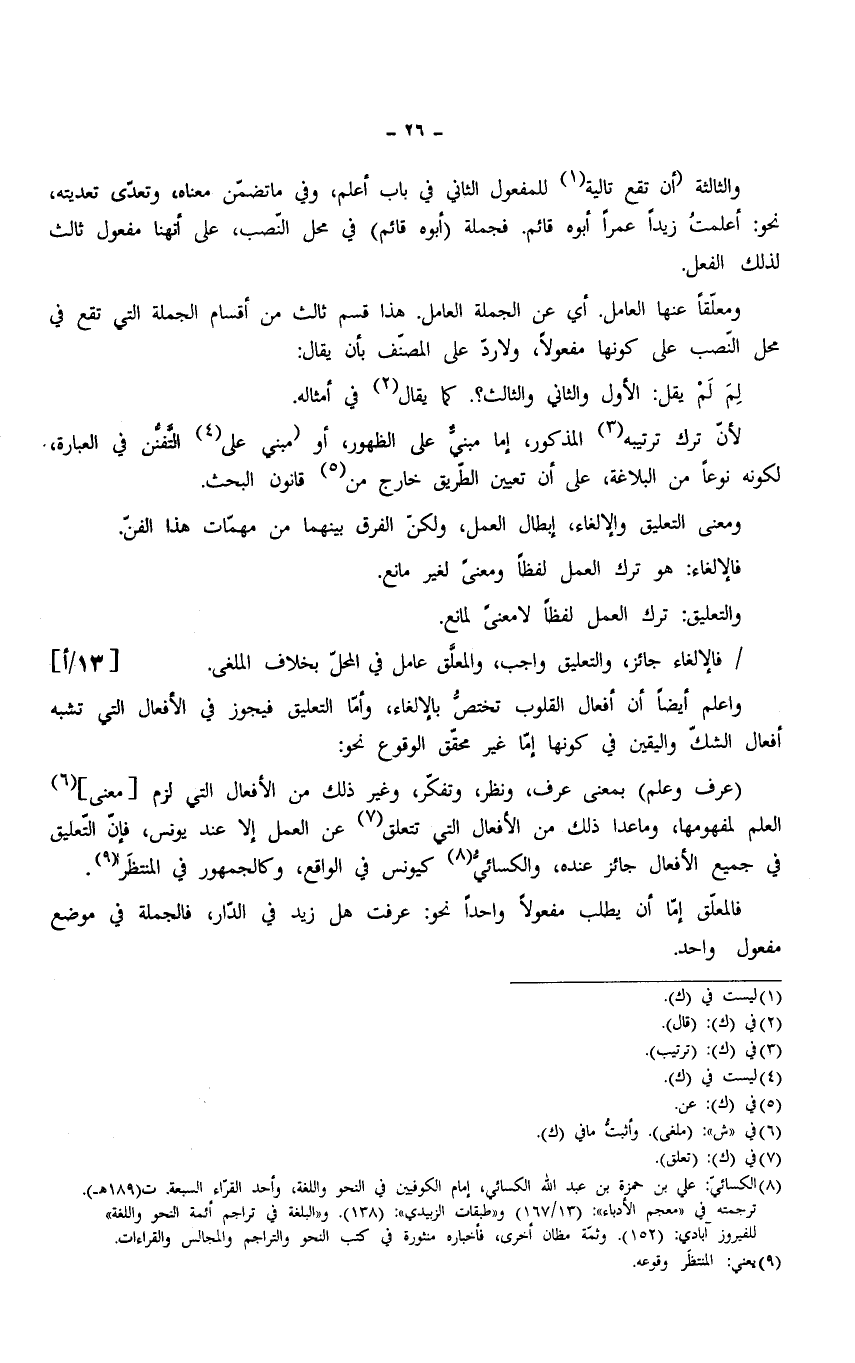 - ٢٦ -
والثالثة (أن تقع تالية(١) للمفعول الثاني في باب أعلم، وفي ماتضمّن معناه، وتعدّى تعديته،
نحو: أعلمتُ زيداً عمراً أبوه قائم. فجملة (أبوه قائم) في محل النّصب، على أنهنا مفعول ثالث
لذلك الفعل.
ومعلّقاً عنها العامل. أي عن الجملة العامل. هذا قسم ثالث من أقسام الجملة التي تقع في
محل النّصب على كونها مفعولاً، ولاردّ على المصنّف بأن يقال:
لِمَ لَمْ يقل: الأول والثاني والثالث؟. كما يقال(٢) في أمثاله.
لأنّ ترك ترتيبه(٣) المذكور، إما مبنيٌّ على الظهور، أو (مبني على(٤) التَّفنُّن في العبارة،
لكونه نوعاً من البلاغة، على أن تعيين الطّريق خارج من(٥) قانون البحث.
ومعنى التعليق والإلغاء، إبطال العمل، ولكنّ الفرق بينهما من مهمّات هذا الفنّ.
فالإلغاء: هو ترك العمل لفظاً ومعنىً لغير مانع.
والتعليق: ترك العمل لفظاً لامعنىً لمانع.
/ فالإلغاء جائز، والتعليق واجب، والمعلَّق عامل في المحلّ بخلاف الملغى. [١٣/أ]
واعلم أيضاً أن أفعال القلوب تختصُّ بالإلغاء، وأمّا التعليق فيجوز في الأفعال التي تشبه
أفعال الشكّ واليقين في كونها إمّا غير محقّق الوقوع نحو:
(عرف وعلم) بمعنى عرف، ونظر، وتفكّر، وغير ذلك من الأفعال التي لزم [معنى](٦)
العلم لمفهومها، وماعدا ذلك من الأفعال التي تتعلق(٧) عن العمل إلا عند يونس، فإنّ التّعليق
في جميع الأفعال جائز عنده، والكسائيُّ(٨) كيونس في الواقع، وكالجمهور في المنتظَر(٩).
فالمعلّق إمّا أن يطلب مفعولاً واحداً نحو: عرفت هل زيد في الدّار، فالجملة في موضع
مفعول واحد.
(١) ليست في (ك).
(٢) في (ك): (قال).
(٣) في (ك): (ترتيب).
(٤) ليست في (ك).
(٥) في (ك): عن.
(٦) في «ش»: (ملغى). وأثبتُ مافي (ك).
(٧) في (ك): (تعلق).
(٨) الكسائيّ: علي بن حمزة بن عبد الله الكسائي، إمام الكوفيين في النحو واللغة، وأحد القرّاء السبعة. ت(١٨٩هـ).
ترجمته في «معجم الأدباء»: (١٣/١٦٧) و«طبقات الزبيدي»: (١٣٨). و«البلغة في تراجم أئمة النحو واللغة»
للفيروز آبادي: (١٥٢). وثمّة مظان أخرى، فأخباره منثورة في كتب النحو والتراجم والمجالس والقراءات.
(٩) يعني: المنتظَر وقوعه.